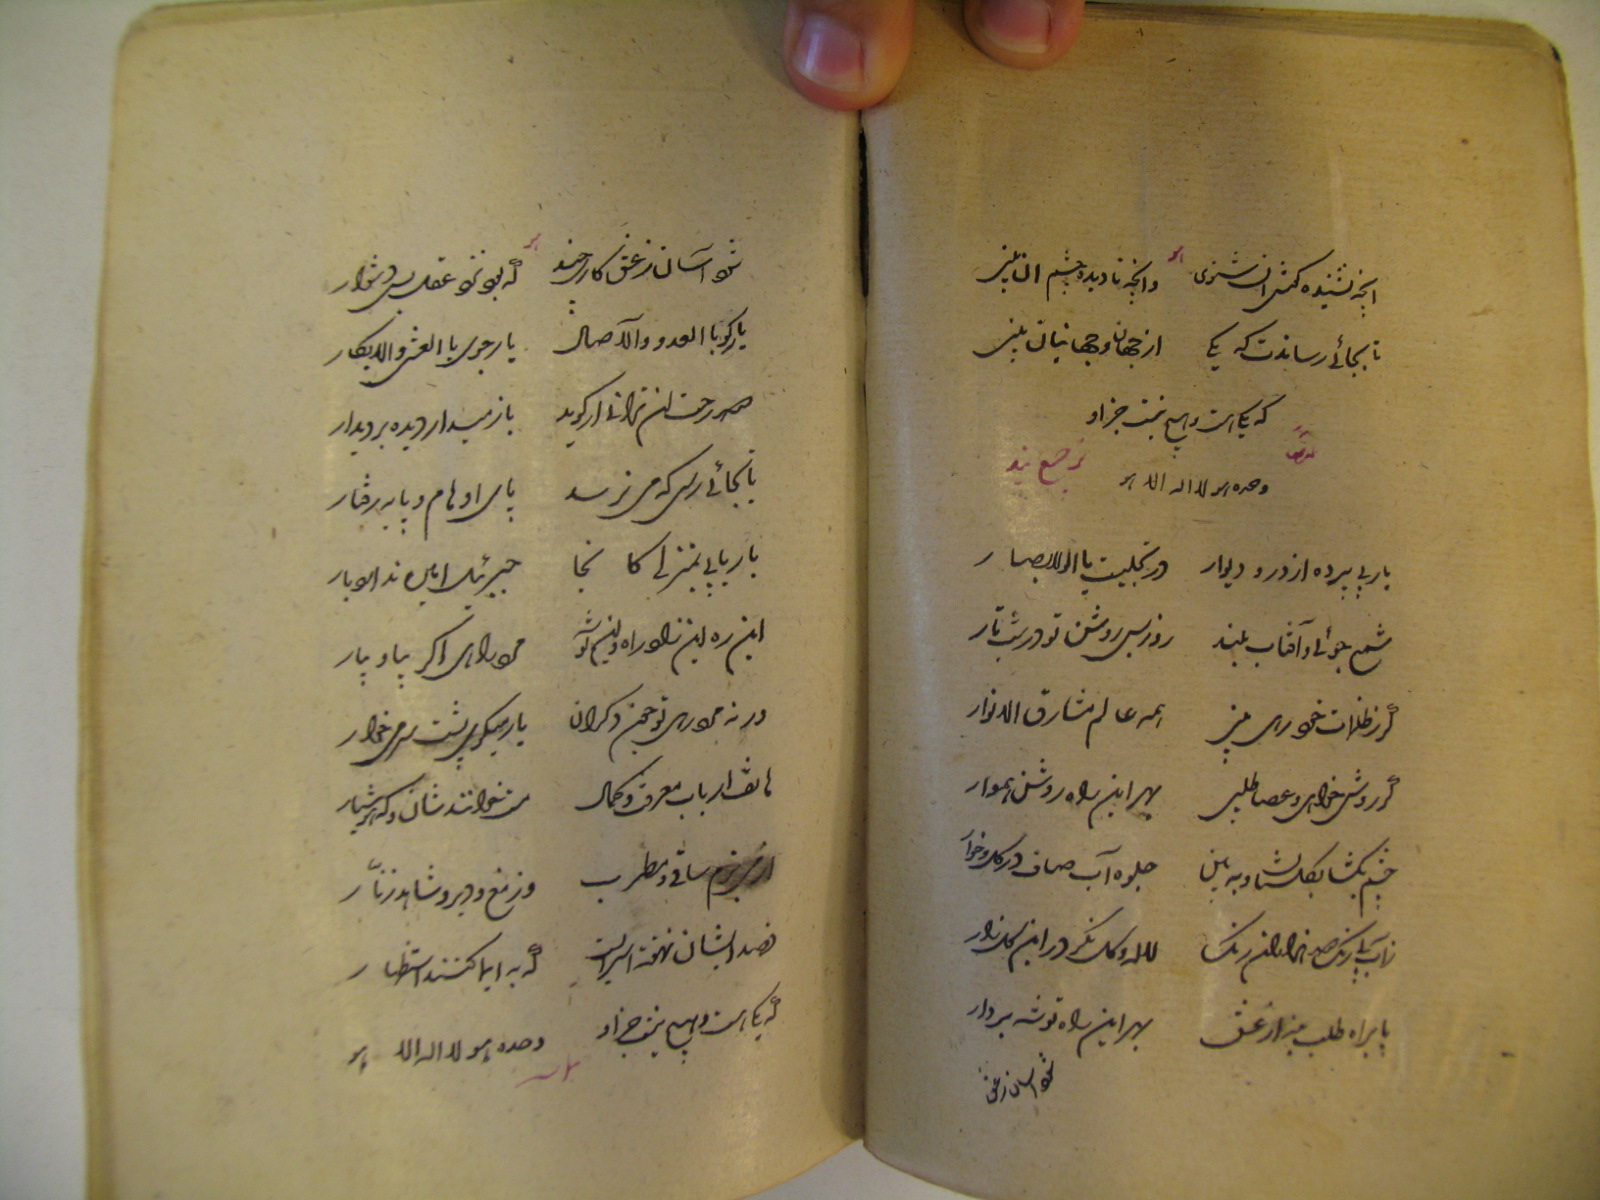 انچه نشنیده گوش آن شنوی وانچه نادیده چشم آن بینی
تا بجائی رساندت که یکی از جهان و جهانیان بینی
که یکی است و هیچ نیست جز او
وحده هو لا اله الا هو
ترجیع بند
یار بی پرده از در و دیوار در تجلیست یا اولی الابصار
شمع جوئی و آفتاب بلند روز بس روشن تو در شب تار
گر ز ظلمات خود رهی بینی همه عالم مشارق الانوار
گر روش خواهی و عصا طلبی بهر این راه روشن هموار
چشم بگشا بگلستان و ببین جلوه آب صاف در گل و خار
زاب بی رنگ صد هزاران رنگ لاله و گل نگر در این گلزار
پا براه طلب نه از عشق بهر این راه توشه بردار
شود آسان ز عشق
شود آسان ز عشق کاری چند که بود نزد عقل بس دشوار
یار گو بالغدو والآصال یار جوی بالعشی والابکار
صد رهت لن ترانی ار گوید باز میدار دیده بر دیدار
تا بجائی رسی که می نرسد پای اوهام و پایه رفتار
بار یابی بمنزلی کانجا جبرئیل امین ندارد بار
این ره این زاد راه و این توشه مرد راهی اگر بیا و بیار
ور نه مرد رهی تو چون دگران یار میگوی پشت سر میخار
هاتف ارباب معرفت که گهی مست خوانندشان و گه هشیار
از بزم ساقی و مطرب وز مغ و دیر و شاهد و زنار
قصد ایشان نهفته اسرایست که به ایما کنند استظهار
که یکی است و هیچ نیست جز او وحده هو لا اله الا هو